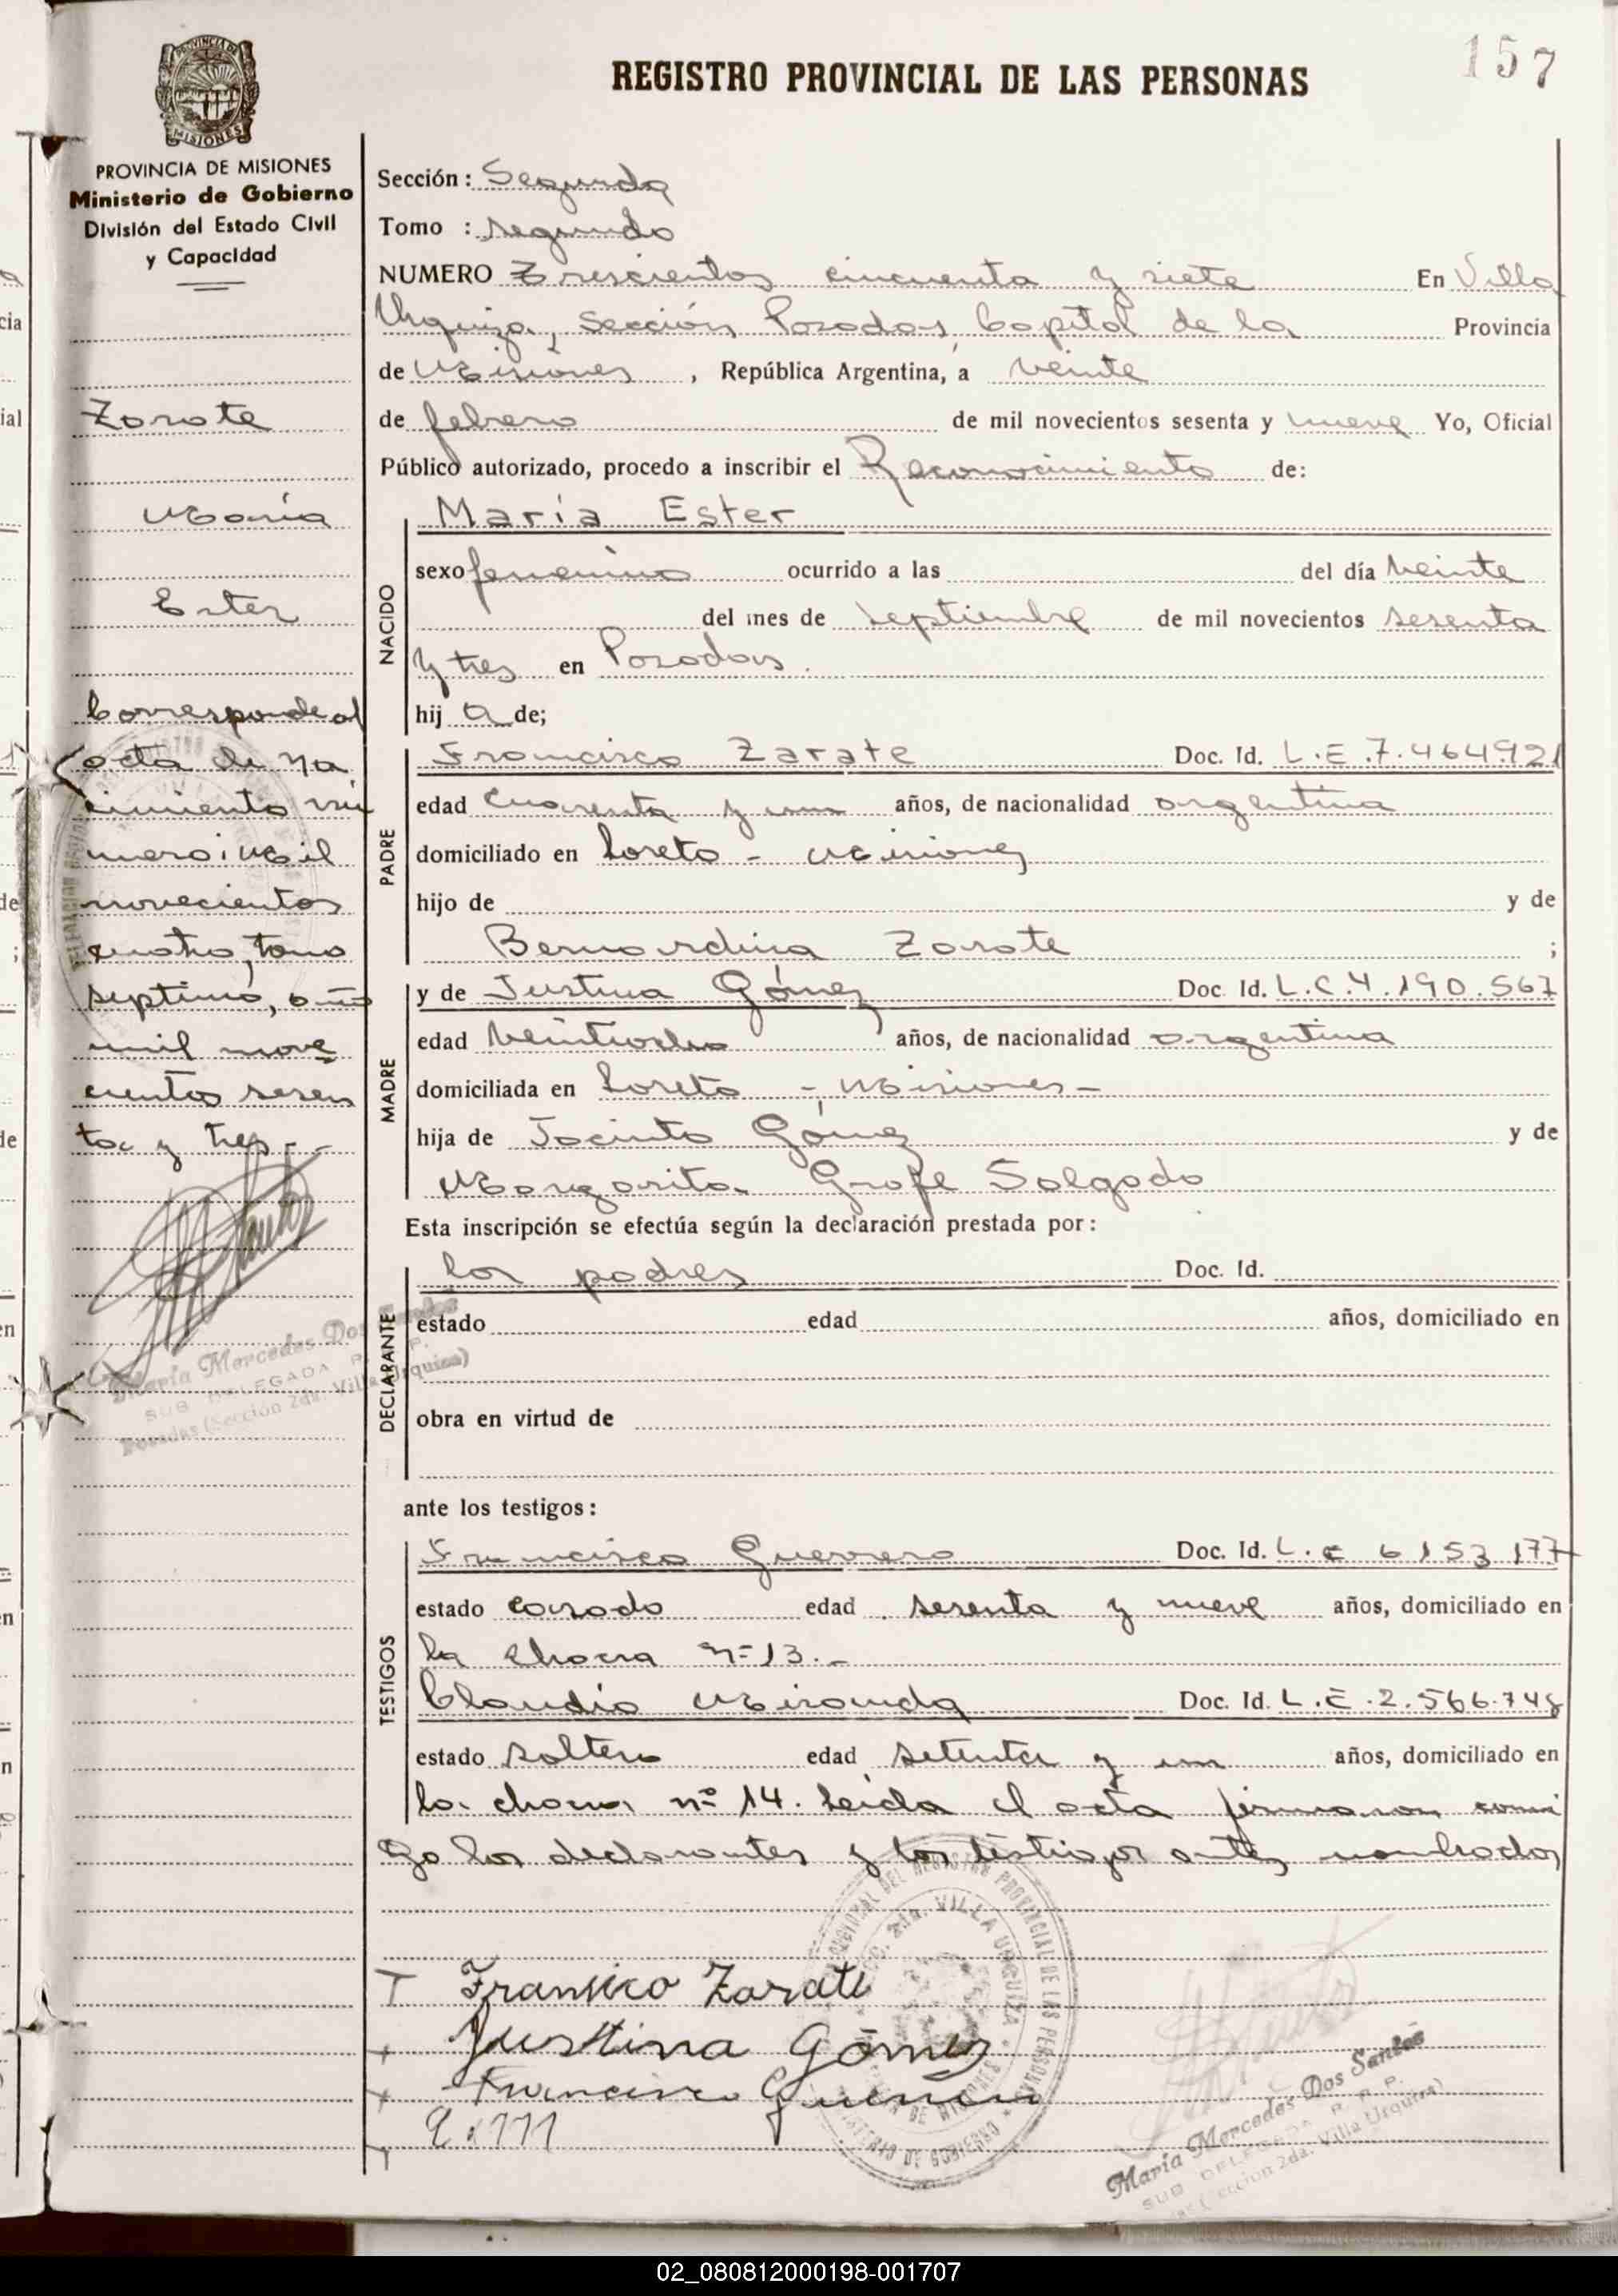 157
REGISTRO PROVINCIAL DE LAS PERSONAS
PROVINCIA DE MISIONES
Ministerio de Gobierno
División del Estado Civil
y Capacidad
Zarate
María
Ester
Corresponde al
acta de na
cimiento nú
mero: Mil
novecientos
cuatro, tomo
septimo, año
mil nove
cientos sesen
ta y tres.-
María Mercedes Dos Santos
SUB DELEGADA R. P. P.
Posadas (Sección 2da. Villa Urquiza)
Sección: Segunda
Tomo : segundo
NUMERO Trescientos cincuenta y siete En Villa
Urquiza, sección Posadas, Capital de la Provincia
de Misiones, República Argentina, a veinte
de febrero de mil novecientos sesenta y nueve Yo, Oficial
Público autorizado, procedo a inscribir el Reconocimiento de:
NACIDO
María Ester
sexo femenino ocurrido a las del día veinte
del mes de septiembre de mil novecientos sesenta
y tres en Posadas.
hij a de;
PADRE
Francisco Zarate Doc. Id. L.E.7.464.921
edad cuarenta y un años, de nacionalidad argentina
domiciliado en Loreto - Misiones
hijo de y de
Bernardina Zarate ;
MADRE
y de Justina Gómez Doc. Id. L.C.4.190.567
edad veintiocho años, de nacionalidad argentina
domiciliada en Loreto - Misiones -
hija de Jacinto Gómez y de
Margarita Grofe Salgado
Esta inscripción se efectúa según la declaración prestada por:
DECLARANTE
los padres Doc. Id.
estado edad años, domiciliado en
obra en virtud de
ante los testigos:
TESTIGOS
Francisco Guerrero Doc. Id. L.E 6 153 177
estado casado edad sesenta y nueve años, domiciliado en
la chacra nº 13.-
Claudio Miranda Doc. Id. L.E.2.566.748
estado soltero edad setenta y un años, domiciliado en
la chacra nº 14. Leída el acta firmaron conmi
go los declarantes y los testigos antes nombrados
Fransico Zarate
Justina Gómez
Francisco Guerrero
VILLA URGUIZA
María Mercedes Dos Santos
SUB DELEGADA R. P. P.
(Sección 2da. Villa Urquiza)
02_080812000198-001707